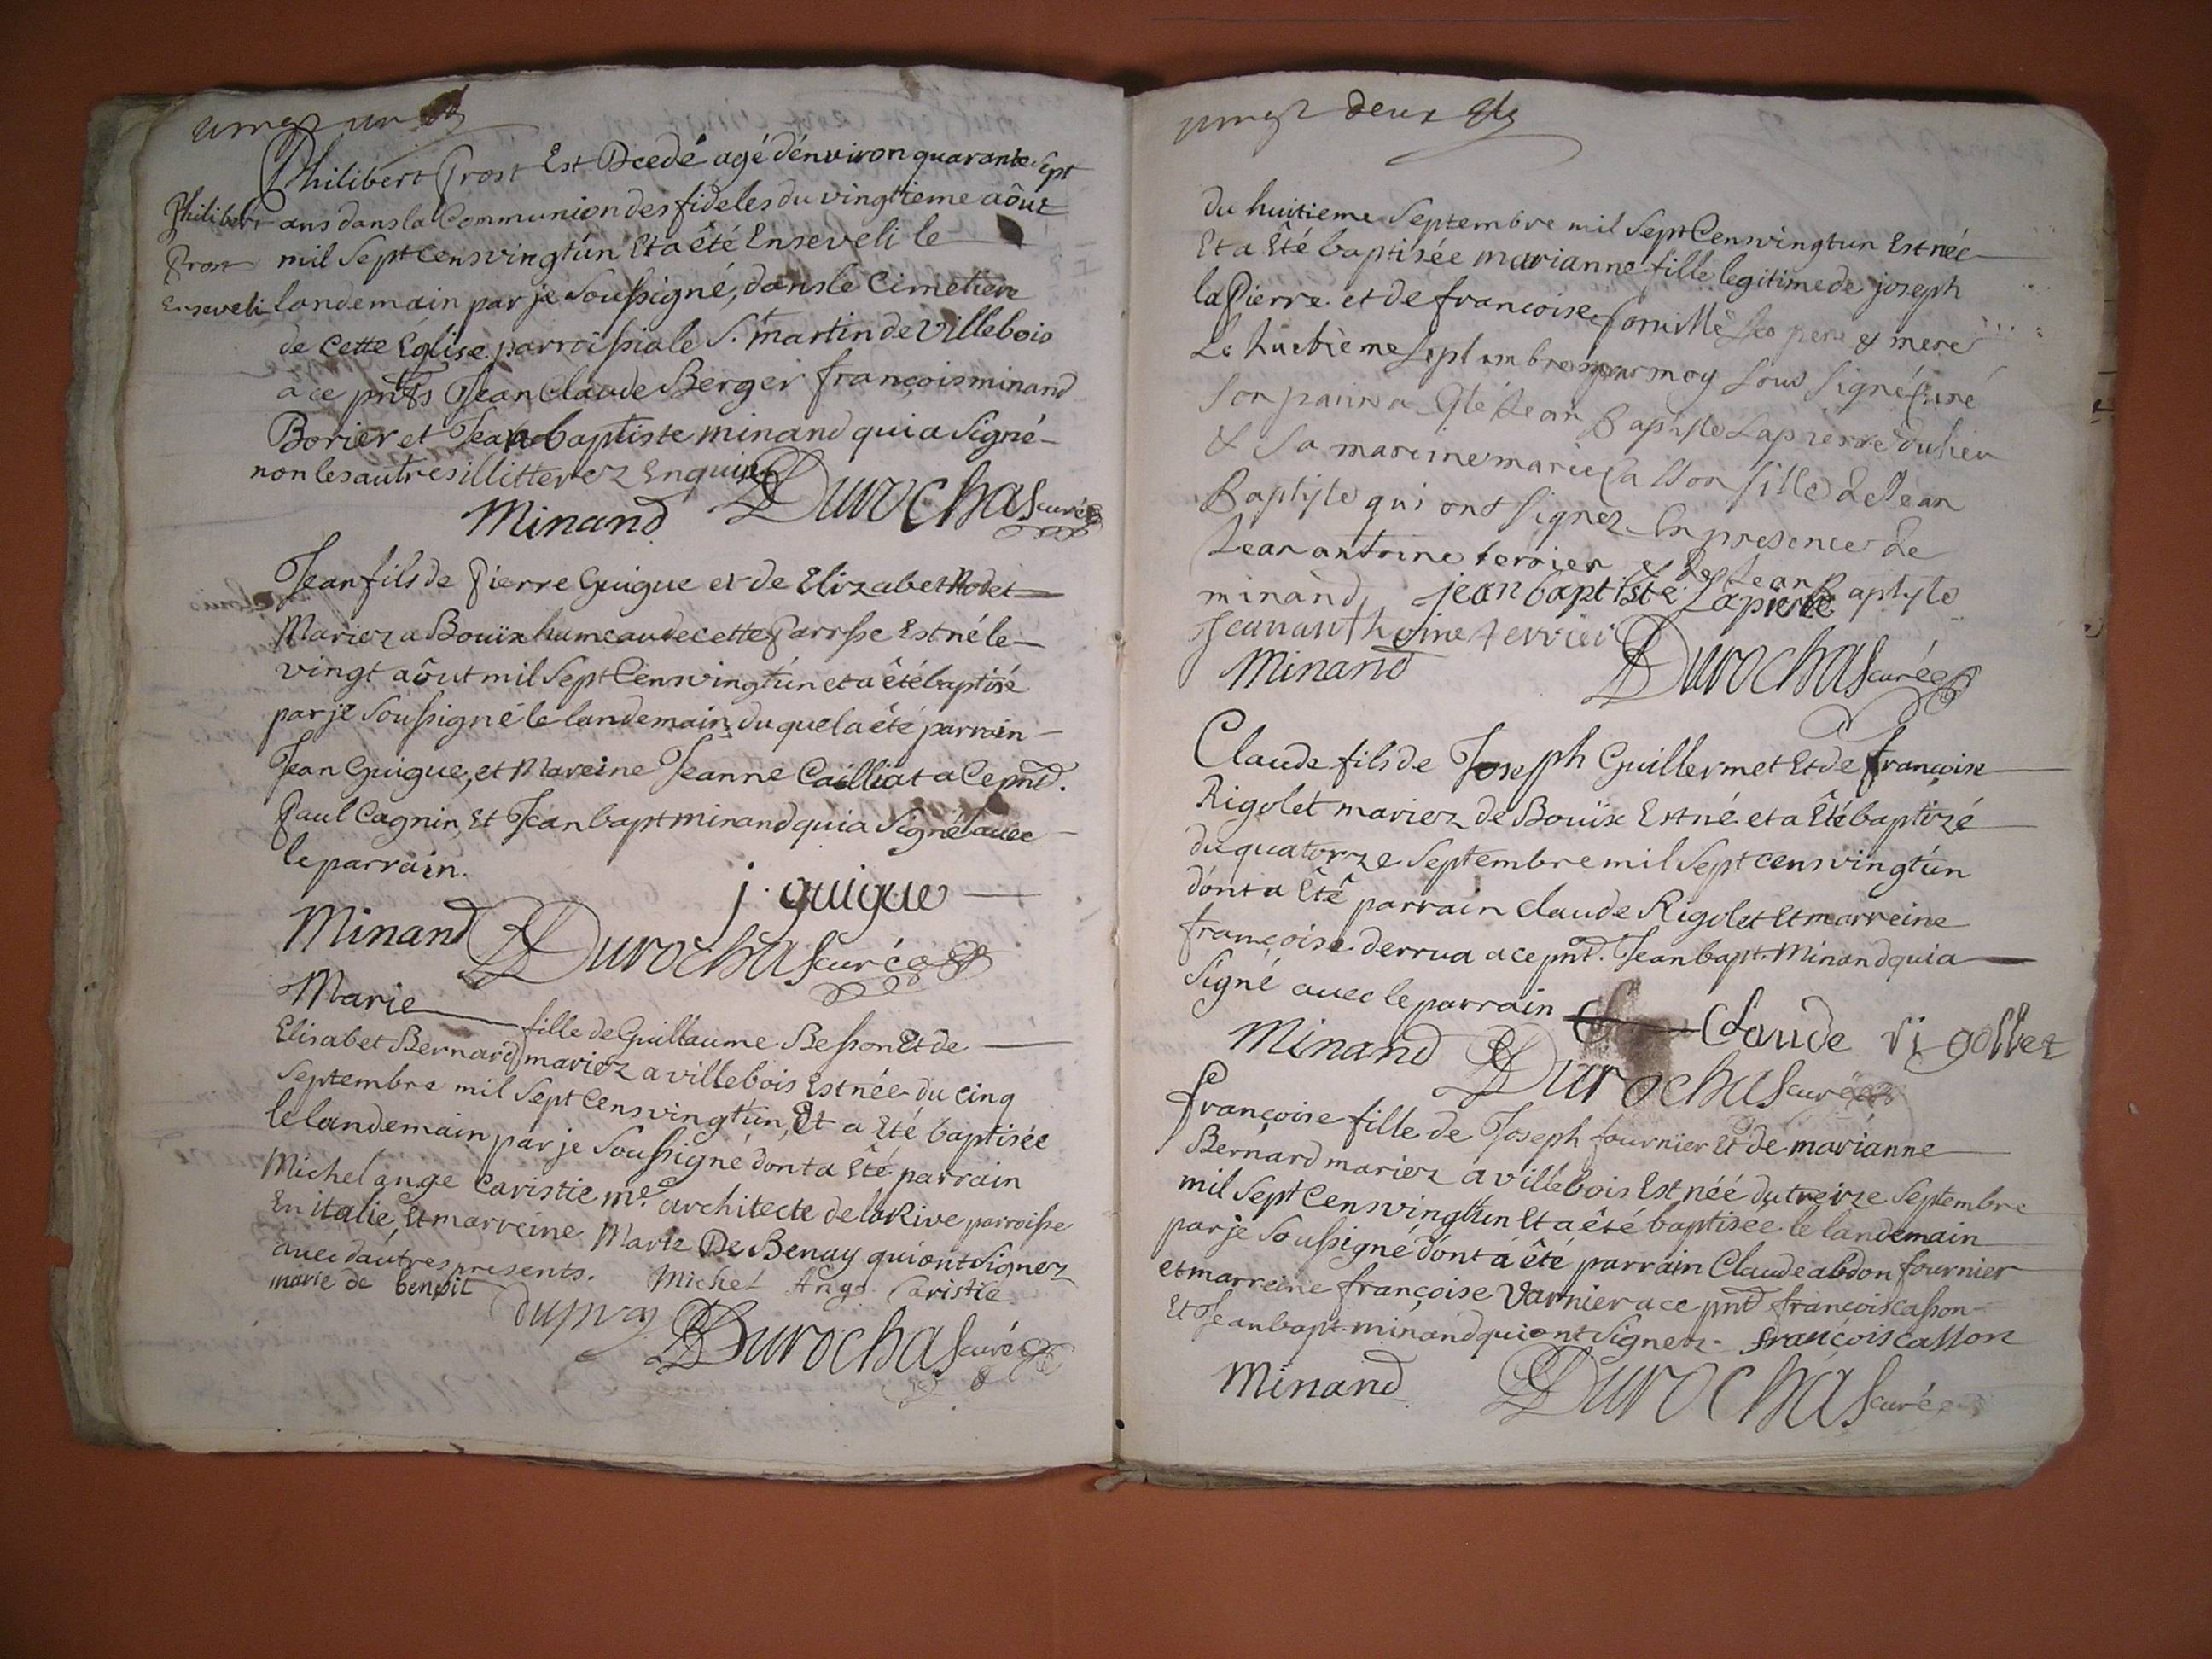 vingt un
Philibert Prost Est Decedé agé d'énviron quarante Sept
Philibert
Prost
Enseveli
ans dans la Communion des fideles du vingtieme aôust
mil Sept cens vingt ún Et a été Enseveli le
landemain par je Soussigné, dans le Cimetiere
de Cette Eglise parroissiale S.t martin de Villebois
a ce pnts Jean Claude Berger françois minand
Borier et Jean baptiste minand qui a Signé
non les autres illitterez Enquis
Minand Durochas curé
Jean fils de Pierre Guigue et de Elizabet Rodet
Mariez a Boüix hameau de cette Parosse Est né le
vingt aôut mil Sept Cens vingt ún et a été baptisé
par je Soussigné le landemain du quel a été parrain
Jean Guigue, et Mareine Jeanne Cailliat a Ce pnts.
Paul Cagnin, Et Jean bapt minand qui a Signé avec
le parrain.
j. guigue
Minand Durochas curé
Marie fille de Guillaume Besson Et de
Elisabet Bernard mariez a villebois Est née du cinq
Septembre mil Sept Cens vingt ún, Et a Eté baptisée
le landemain par je Soussigné dont a Eté parrain
Michel ange Caristie m.e architecte de la Rive parroisse
En italie, Et marreine Marie De Benay qui ont Signez
avec dautres presents. Michel Ange Caristie
marie de benoit dupuy
Durochas curé
vingt deux
du huitieme Septembre mil Sept Cens vingt un Est née
Et a Eté baptisée marianne fille legitime de joseph
la Pierre et de francoise ses pere et mere
Le huitième Septembre par moy sous signé Curé
Son parin a Eté Jean Baptiste Lapierre du lieu
& Sa mareine marie Casson fille de Jean
Baptiste qui ont signez En presence de
Jean antoine terrier & de Jean Baptiste
minand, jean baptiste Lapierre
Jean anthoine terrier
Minand Durochas curé
Claude fils de Joseph Guillermet Et de françoise
Rigolet mariez de Boüix Est né et a Eté baptizé
du quatorze Septembre mil Sept cens vingt ún
dont a Eté parrain Claude Rigolet Et marreine
françoise derrua a ce pnts. Jean bapt. Minand qui a
Signé avec le parrain Claude rigollet
Minand Durochas curé
françoise fille de Joseph fournier Et de marianne
Bernard mariez a villebois Est néé du treize Septembre
mil Sept Cens vingt ún Et a été baptisée le landemain
par je Soussigné dont a été parrain Claude abdon fournier
et marreine françoise Varnier a ce pnts françois casson
Et Jean bapt. minand qui ont Signez. françois casson
Minand Durochas curé